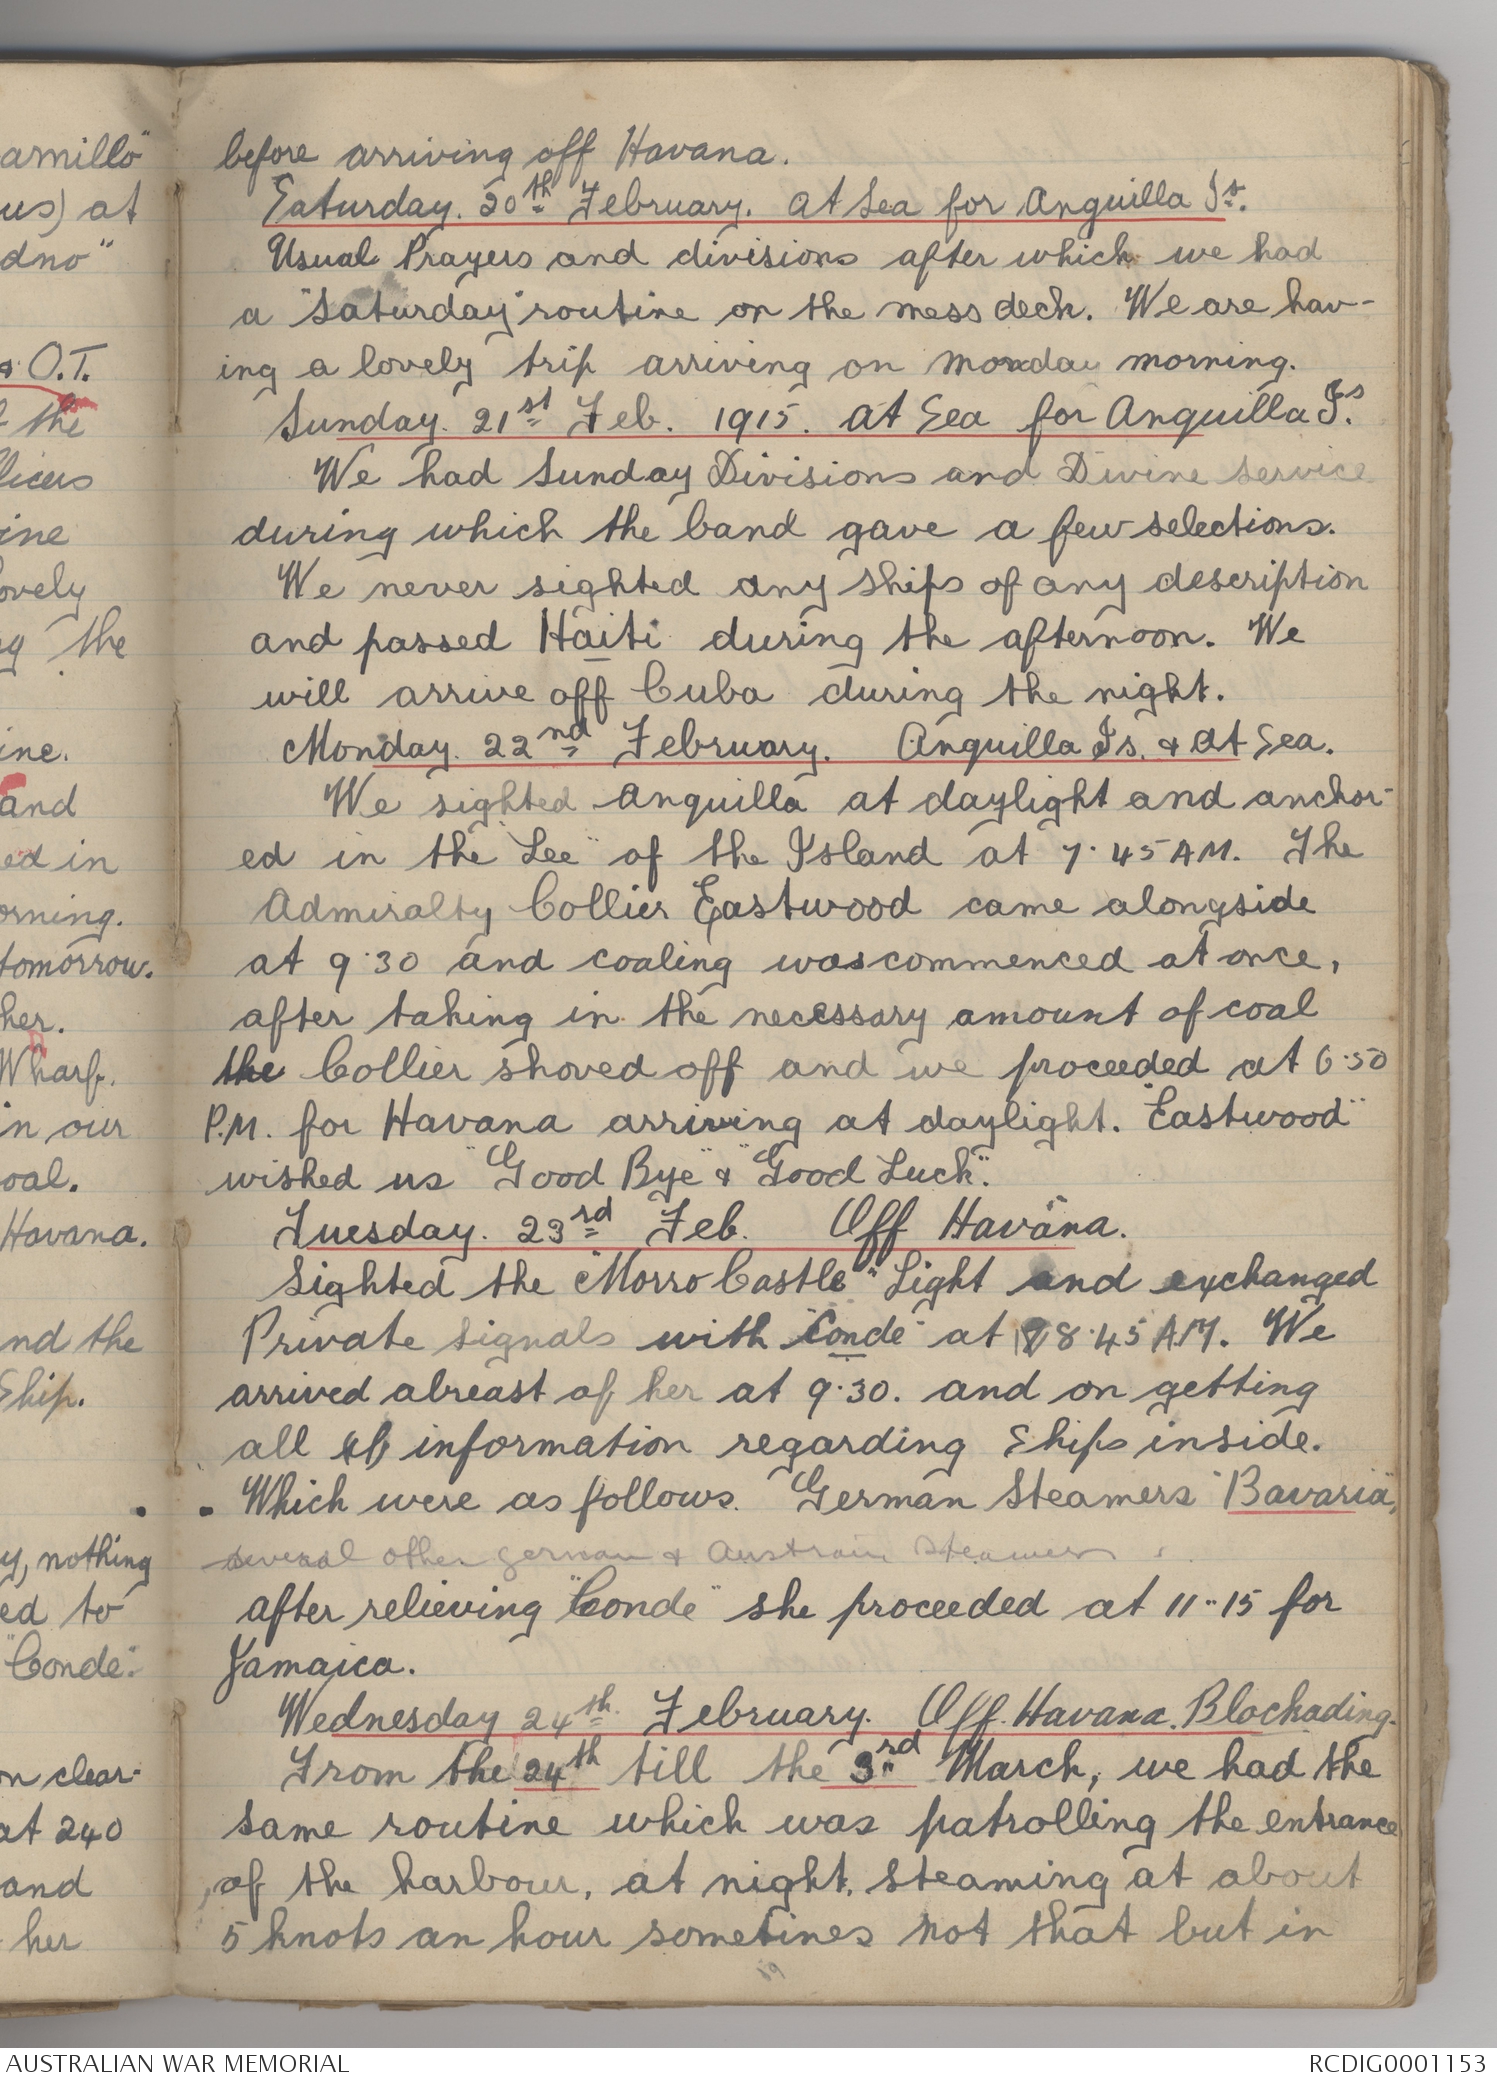 before arriving off Havana.
Saturday. 20th February. At Sea for Anguilla Is.
Usual Prayers and divisions after which we had
a "Saturday" routine on the mess deck. We are hav-
ing a lovely trip arriving on Monday morning.
Sunday. 21st Feb. 1915. At Sea for Anguilla Is.
We had Sunday Divisions and Divine service
during which the band gave a few selections.
We never sighted any ships of any description
and passed Haiti during the afternoon. We
will arrive off Cuba during the night.
Monday. 22nd February. Anguilla Is. & At Sea.
We sighted Anguilla at daylight and anchor-
ed in the "Lee" of the Island at 7.45 AM. The
Admiralty Collier Eastwood came alongside
at 9.30 and coaling was commenced at once,
after taking in the necessary amount of coal
the Collier shoved off and we proceeded at 6.50
P.M. for Havana arriving at daylight. "Eastwood"
wished us "Good Bye" & "Good Luck".
Tuesday. 23rd Feb. Off Havana.
Sighted the "Morro Castle" Light and exchanged
Private signals with "Conde" at 8.45 AM. We
arrived abreast of her at 9.30. and on getting
all information regarding Ships inside.
Which were as follows. German Steamers "Bavaria",
several other german & Austrain steamers
after relieving "Conde" she proceeded at 11-15 for
Jamaica.
Wednesday 24th. February. Off Havana. Blockading.
From the 24th till the 3rd March, we had the
same routine which was patrolling the entrance
of the harbour, at night, steaming at about
5 knots an hour sometines not that but in
19
armillo"
us) at
dno"
& O.T.
f the
ficers
ine
ovely
ng the
ine.
and
ed in
orning.
tomorrow.
her.
Wharf.
in our
oal.
Havana.
nd the
Ship.
y, nothing
ed to
"Conde".
on clear-
at 240
and
her
AUSTRALIAN WAR MEMORIAL
RCDIG0001153